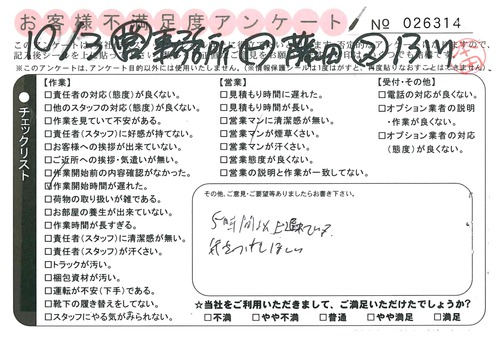 お客様不満足度アンケート
No 026314
10/3
事務所
藤田
13
※このアンケートは、アンケート目的以外には使用いたしません。(※情報保護シールは1度はがすと、再度貼りなおすことはできません。)
チェックリスト
【作業】
□責任者の対応(態度)が良くない。
□他のスタッフの対応(態度)が良くない。
□作業を見ていて不安がある。
□責任者(スタッフ)に好感が持てない。
□お客様への挨拶が出来ていない。
□ご近所への挨拶・気遣いが無い。
□作業開始前の内容確認がなかった。
□作業開始時間が遅れた。
□荷物の取り扱いが雑である。
□お部屋の養生が出来ていない。
□作業時間が長すぎる。
□責任者(スタッフ)に清潔感が無い。
□責任者(スタッフ)が汗くさい。
□トラックが汚い。
□梱包資材が汚い。
□運転が不安(下手)である。
□靴下の履き替えをしてない。
□スタッフにやる気がみられない。
【営業】
□見積もり時間に遅れた。
□見積もり時間が長い。
□営業マンに清潔感が無い。
□営業マンが煙草くさい。
□営業マンが汗くさい。
□営業態度が良くない。
□営業の説明と作業が一致してない。
【受付・その他】
□電話の対応が良くない。
□オプション業者の説明
・作業が良くない。
□オプション業者の対応
(態度)が良くない。
その他、ご意見・ご要望等ありましたらお書き下さい。
5時間以上遅れている。
気をつけてほしい
☆当社をご利用いただきまして、ご満足いただけたでしょうか?
□不満 □やや不満 □普通 □やや満足 □満足